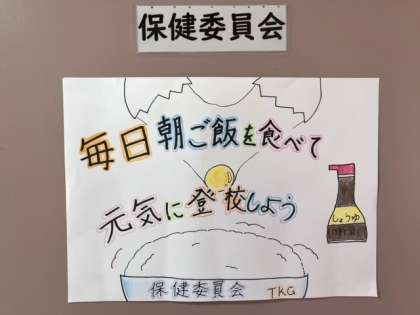 保健委員会
毎日朝ご飯を食べて
元気に登校しよう
しょうゆ
保健委員会 TKG